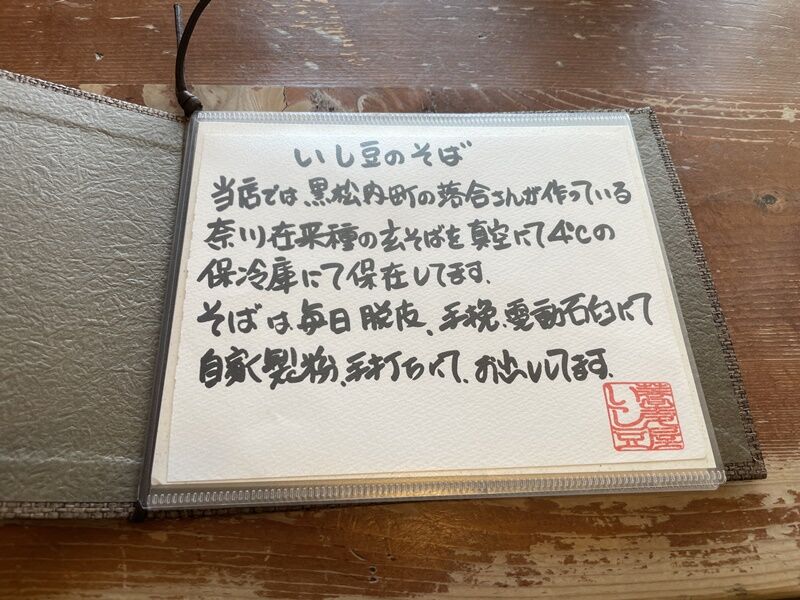 いし豆のそば
当店では、黒松内町の落合さんが作っている
奈川在来種の玄そばを真空にて4℃の
保冷庫にて保在してます。
そばは毎日脱皮、手挽、電動石臼にて
自家製粉、手打ちにて、お出ししてます。
蕎麦屋
いし豆